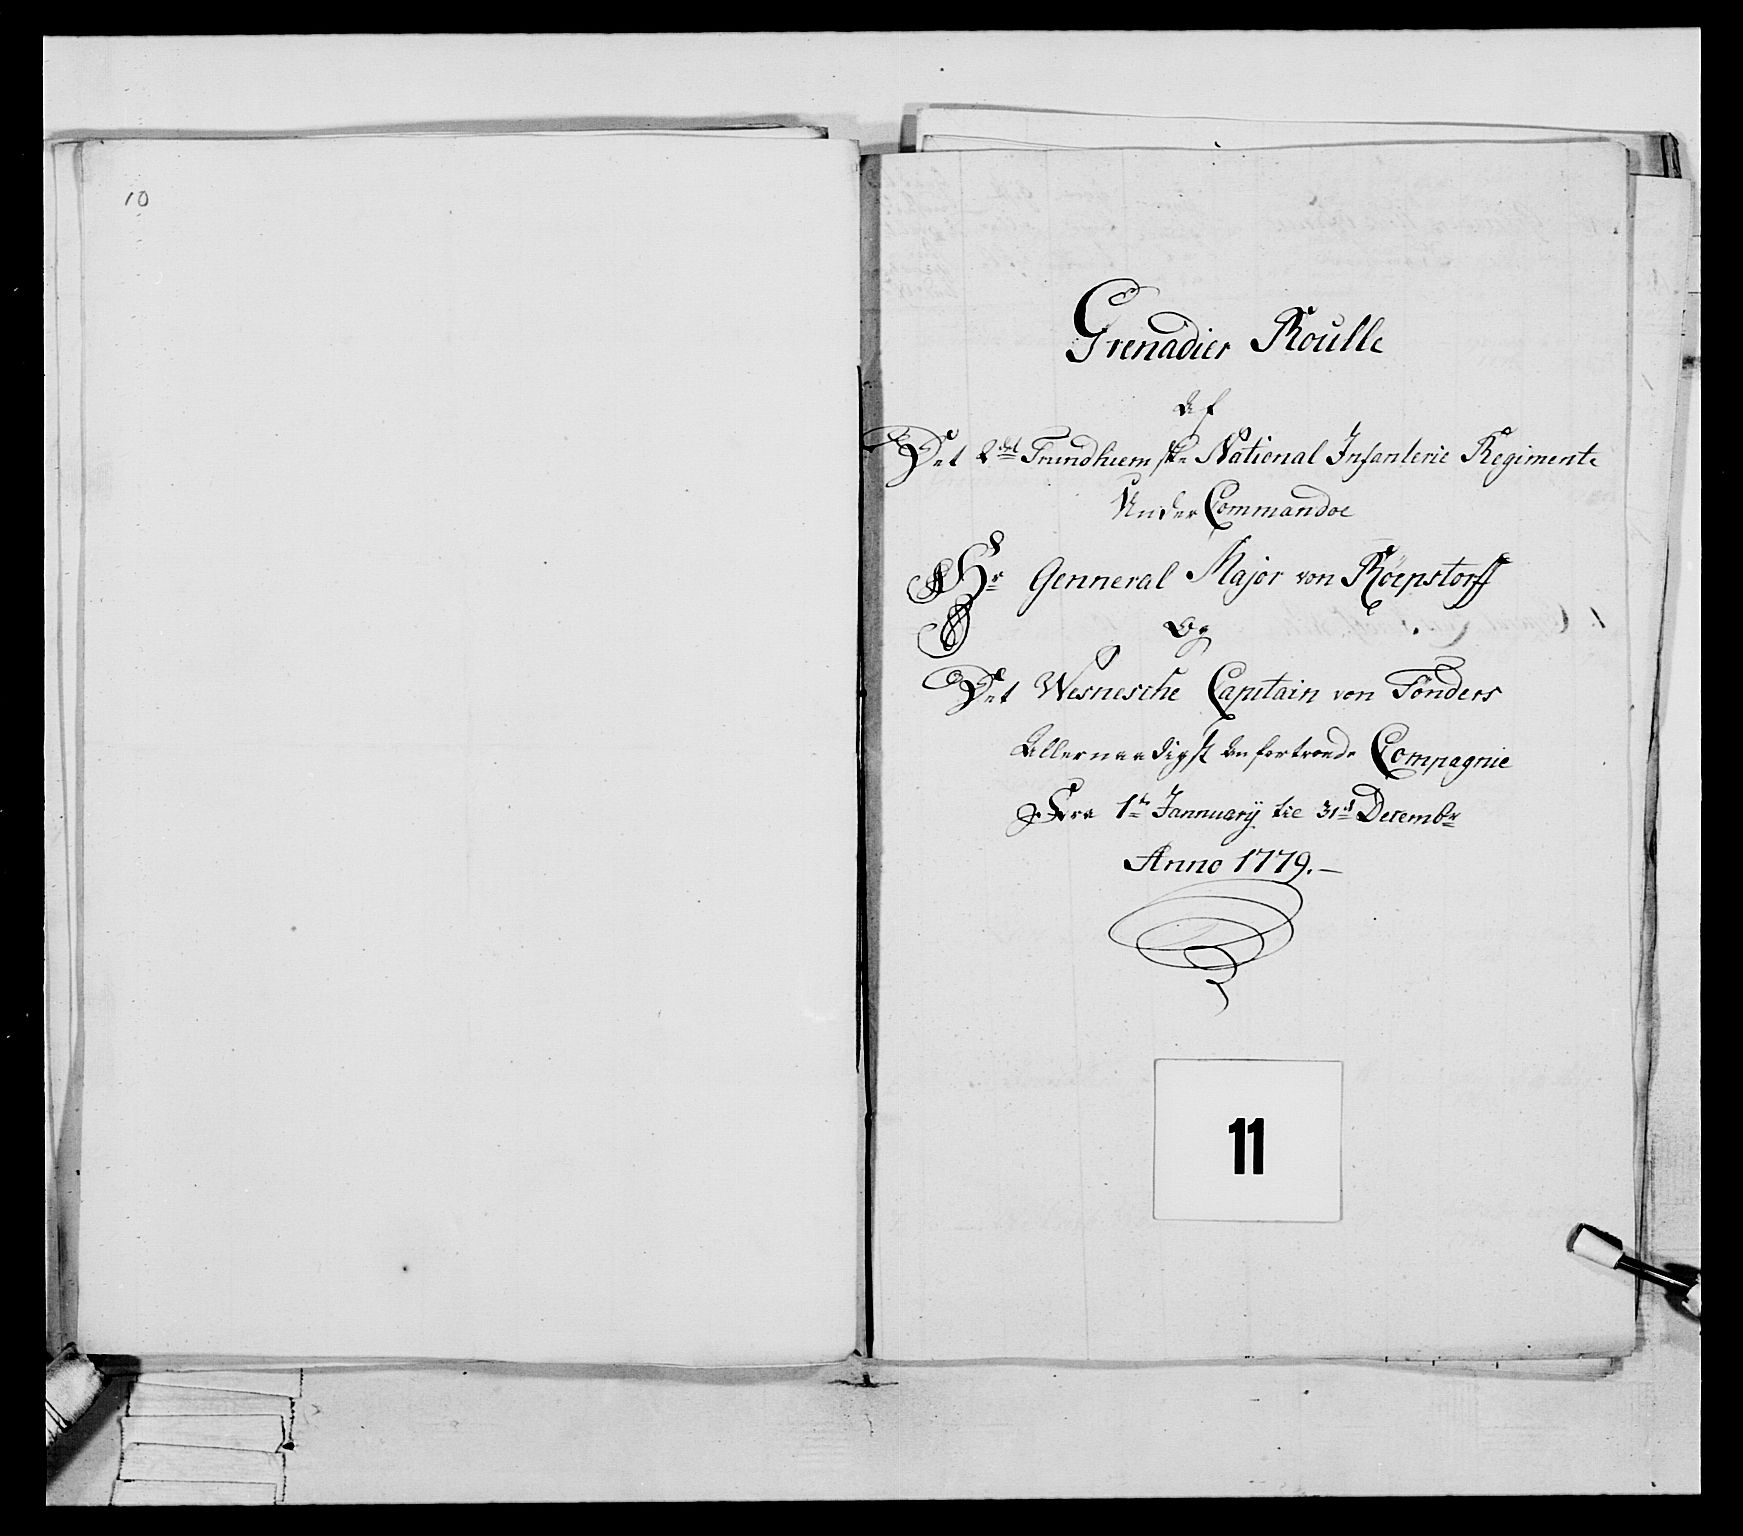 10
Grenadier Roulle
af
Det 2det Trundhiemske National Infanterie Regimente
Under Commandoe
Hr Genneral Major von Röepstorff
Og
Det Wesnesche Capitain von Tönders
Allernaadigst anfortroede Compagnie
Fra 1te Jannuarij til 31te Decembr
Anno 1779.
11